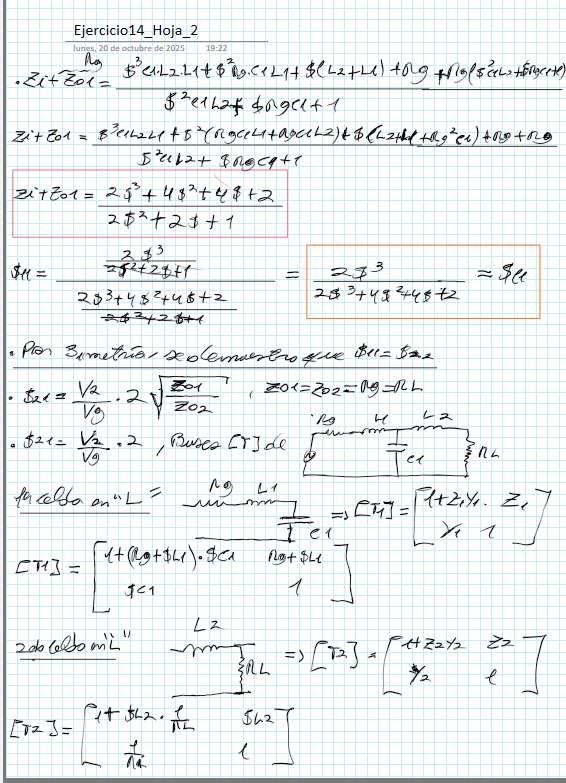 Ejercicio14_Hoja_2
lunes, 20 de octubre de 2025 19:22
. Zi + Z01 = $³C1·L2·L1 + $²Rg·C1L1 + $(L2+L1) + Rg + Rg($²C1L2 + $RgC1+1) / $²C1L2 + $RgC1 + 1
Rg
Zi + Z01 = $³C1L2L1 + $²(RgC1L1+RgC1L2) + $(L2+L1+Rg²C1) + Rg + Rg / $²C1L2 + $RgC1 + 1
Zi + Z01 = 2$³ + 4$² + 4$ + 2 / 2$² + 2$ + 1
$11 = (2$³ / 2$²+2$+1) / (2$³+4$²+4$+2 / 2$²+2$+1) = 2$³ / 2$³+4$²+4$+2 ≈ $11
. Por simetría, se demuestra que $11 = $22
. $21 = V2/Vg · 2 √(Z01/Z02) , Z01 = Z02 = Rg = RL
. $21 = V2/Vg · 2 , Buscas [T] de
Rg L1 L2 C1 RL
1ª celda en "L" =
Rg L1 C1 => [T1] = [1+Z1Y1 Z1
Y1 1]
[T1] = [1+(Rg+$L1)·$C1 Rg+$L1
$C1 1]
2da celda en "L"
L2 RL => [T2] = [1+Z2Y2 Z2
Y2 1]
[T2] = [1+$L2·1/RL $L2
1/RL 1]